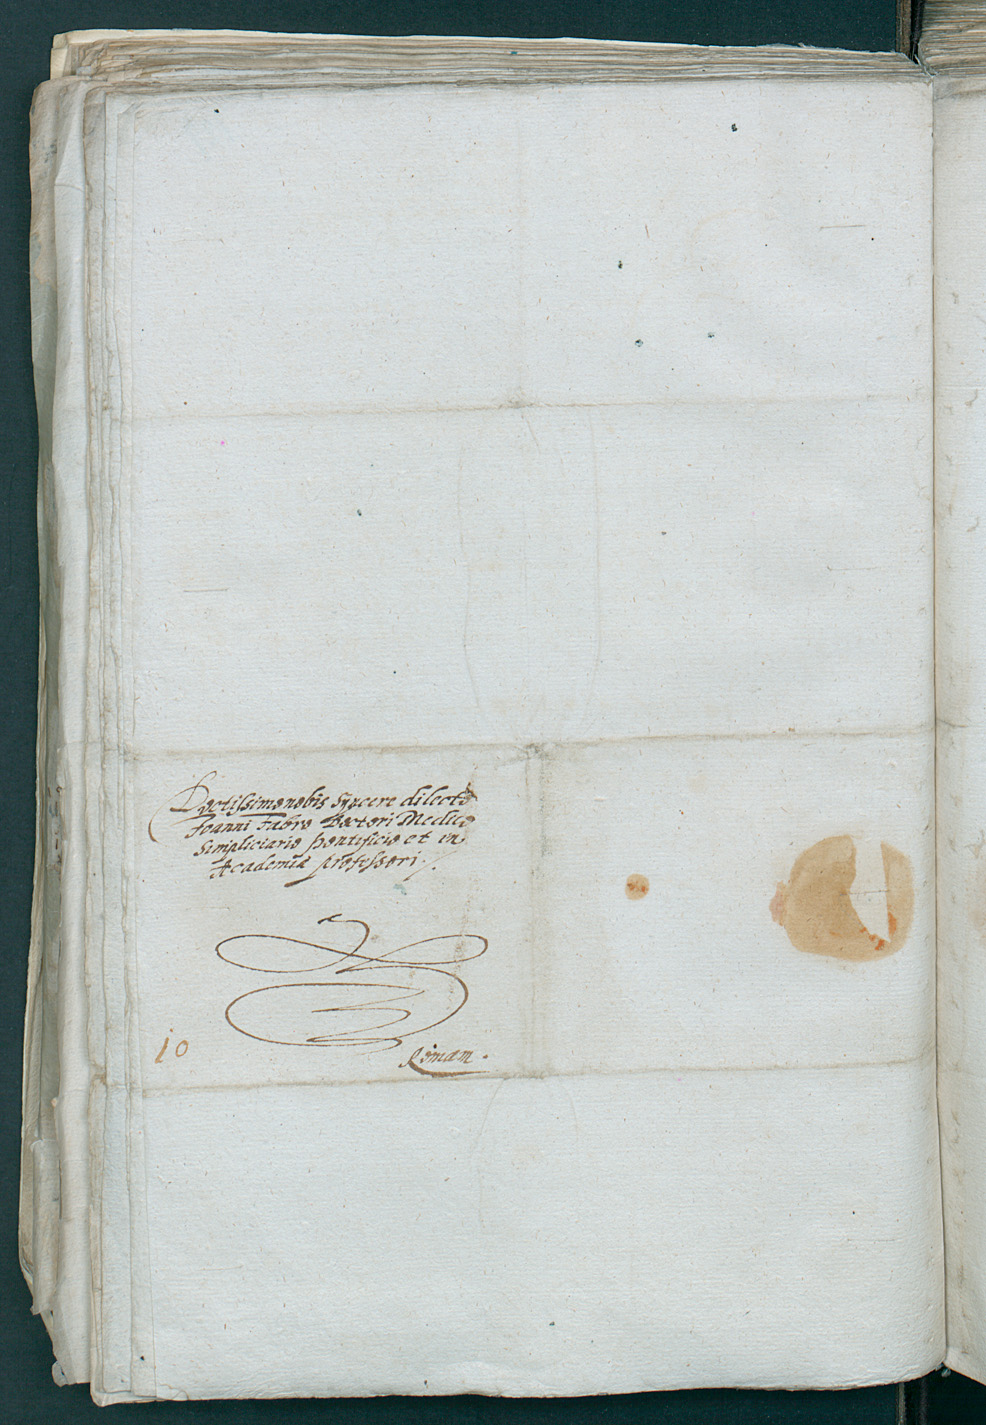 Doctissimo nobis syncere dilecto
Joanni Fabro Doctori Medico
Simpliciario pontificio et in
Academia professori.
10
Romam.